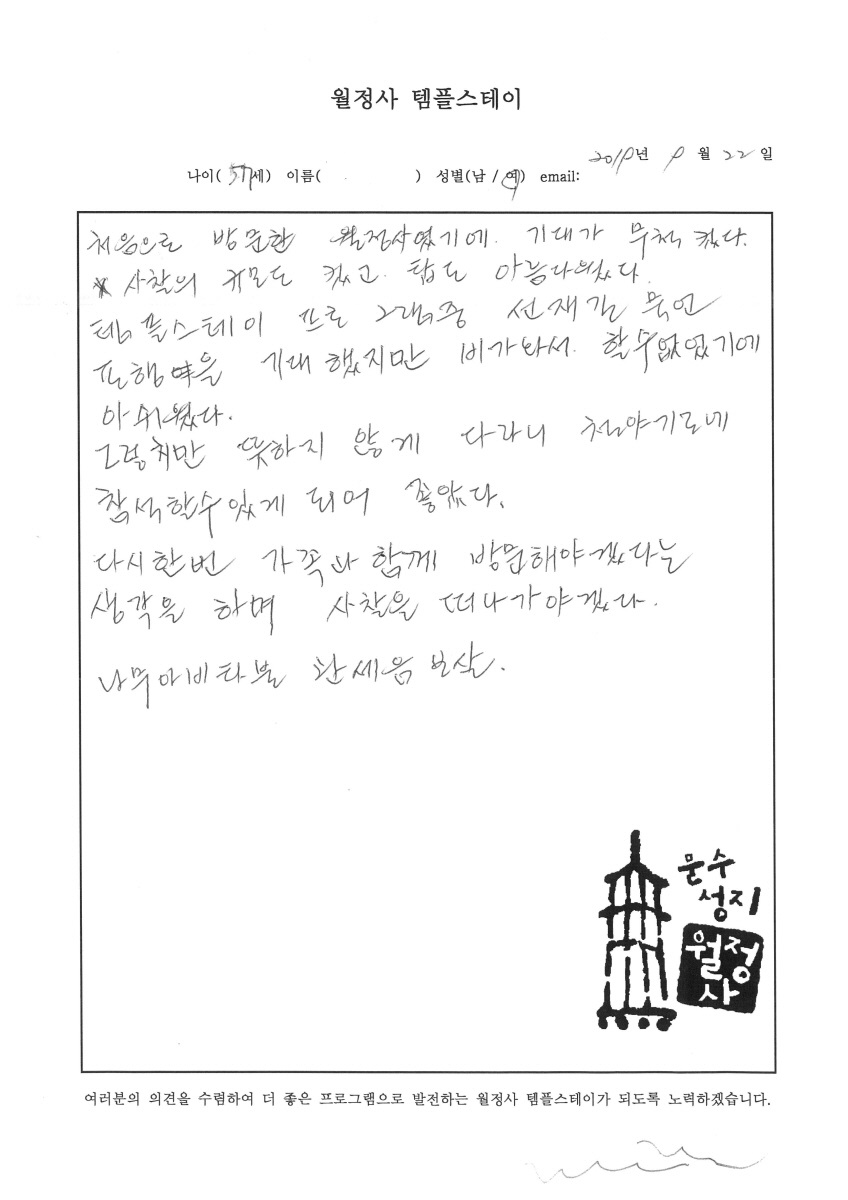 월정사 템플스테이
2019년 9월 22일
나이( 57세) 이름( ) 성별(남 / 여) email:
처음으로 방문한 월정사였기에. 기대가 무척 컸다.
사찰의 규모도 컸고. 탑도 아름다웠다.
템플스테이 프로그램중 선재길 묵언
포행을 기대했지만 비가와서. 할수없었기에
아쉬웠다.
그렇치만 뜻하지 않게 다라니 철야기도에
참석할수있게 되어 좋았다.
다시한번 가족과 함께 방문해야겠다는
생각을 하며 사찰을 떠나가야겠다.
나무아비타불 관세음 보살.
문수
성지
월정
사
여러분의 의견을 수렴하여 더 좋은 프로그램으로 발전하는 월정사 템플스테이가 되도록 노력하겠습니다.